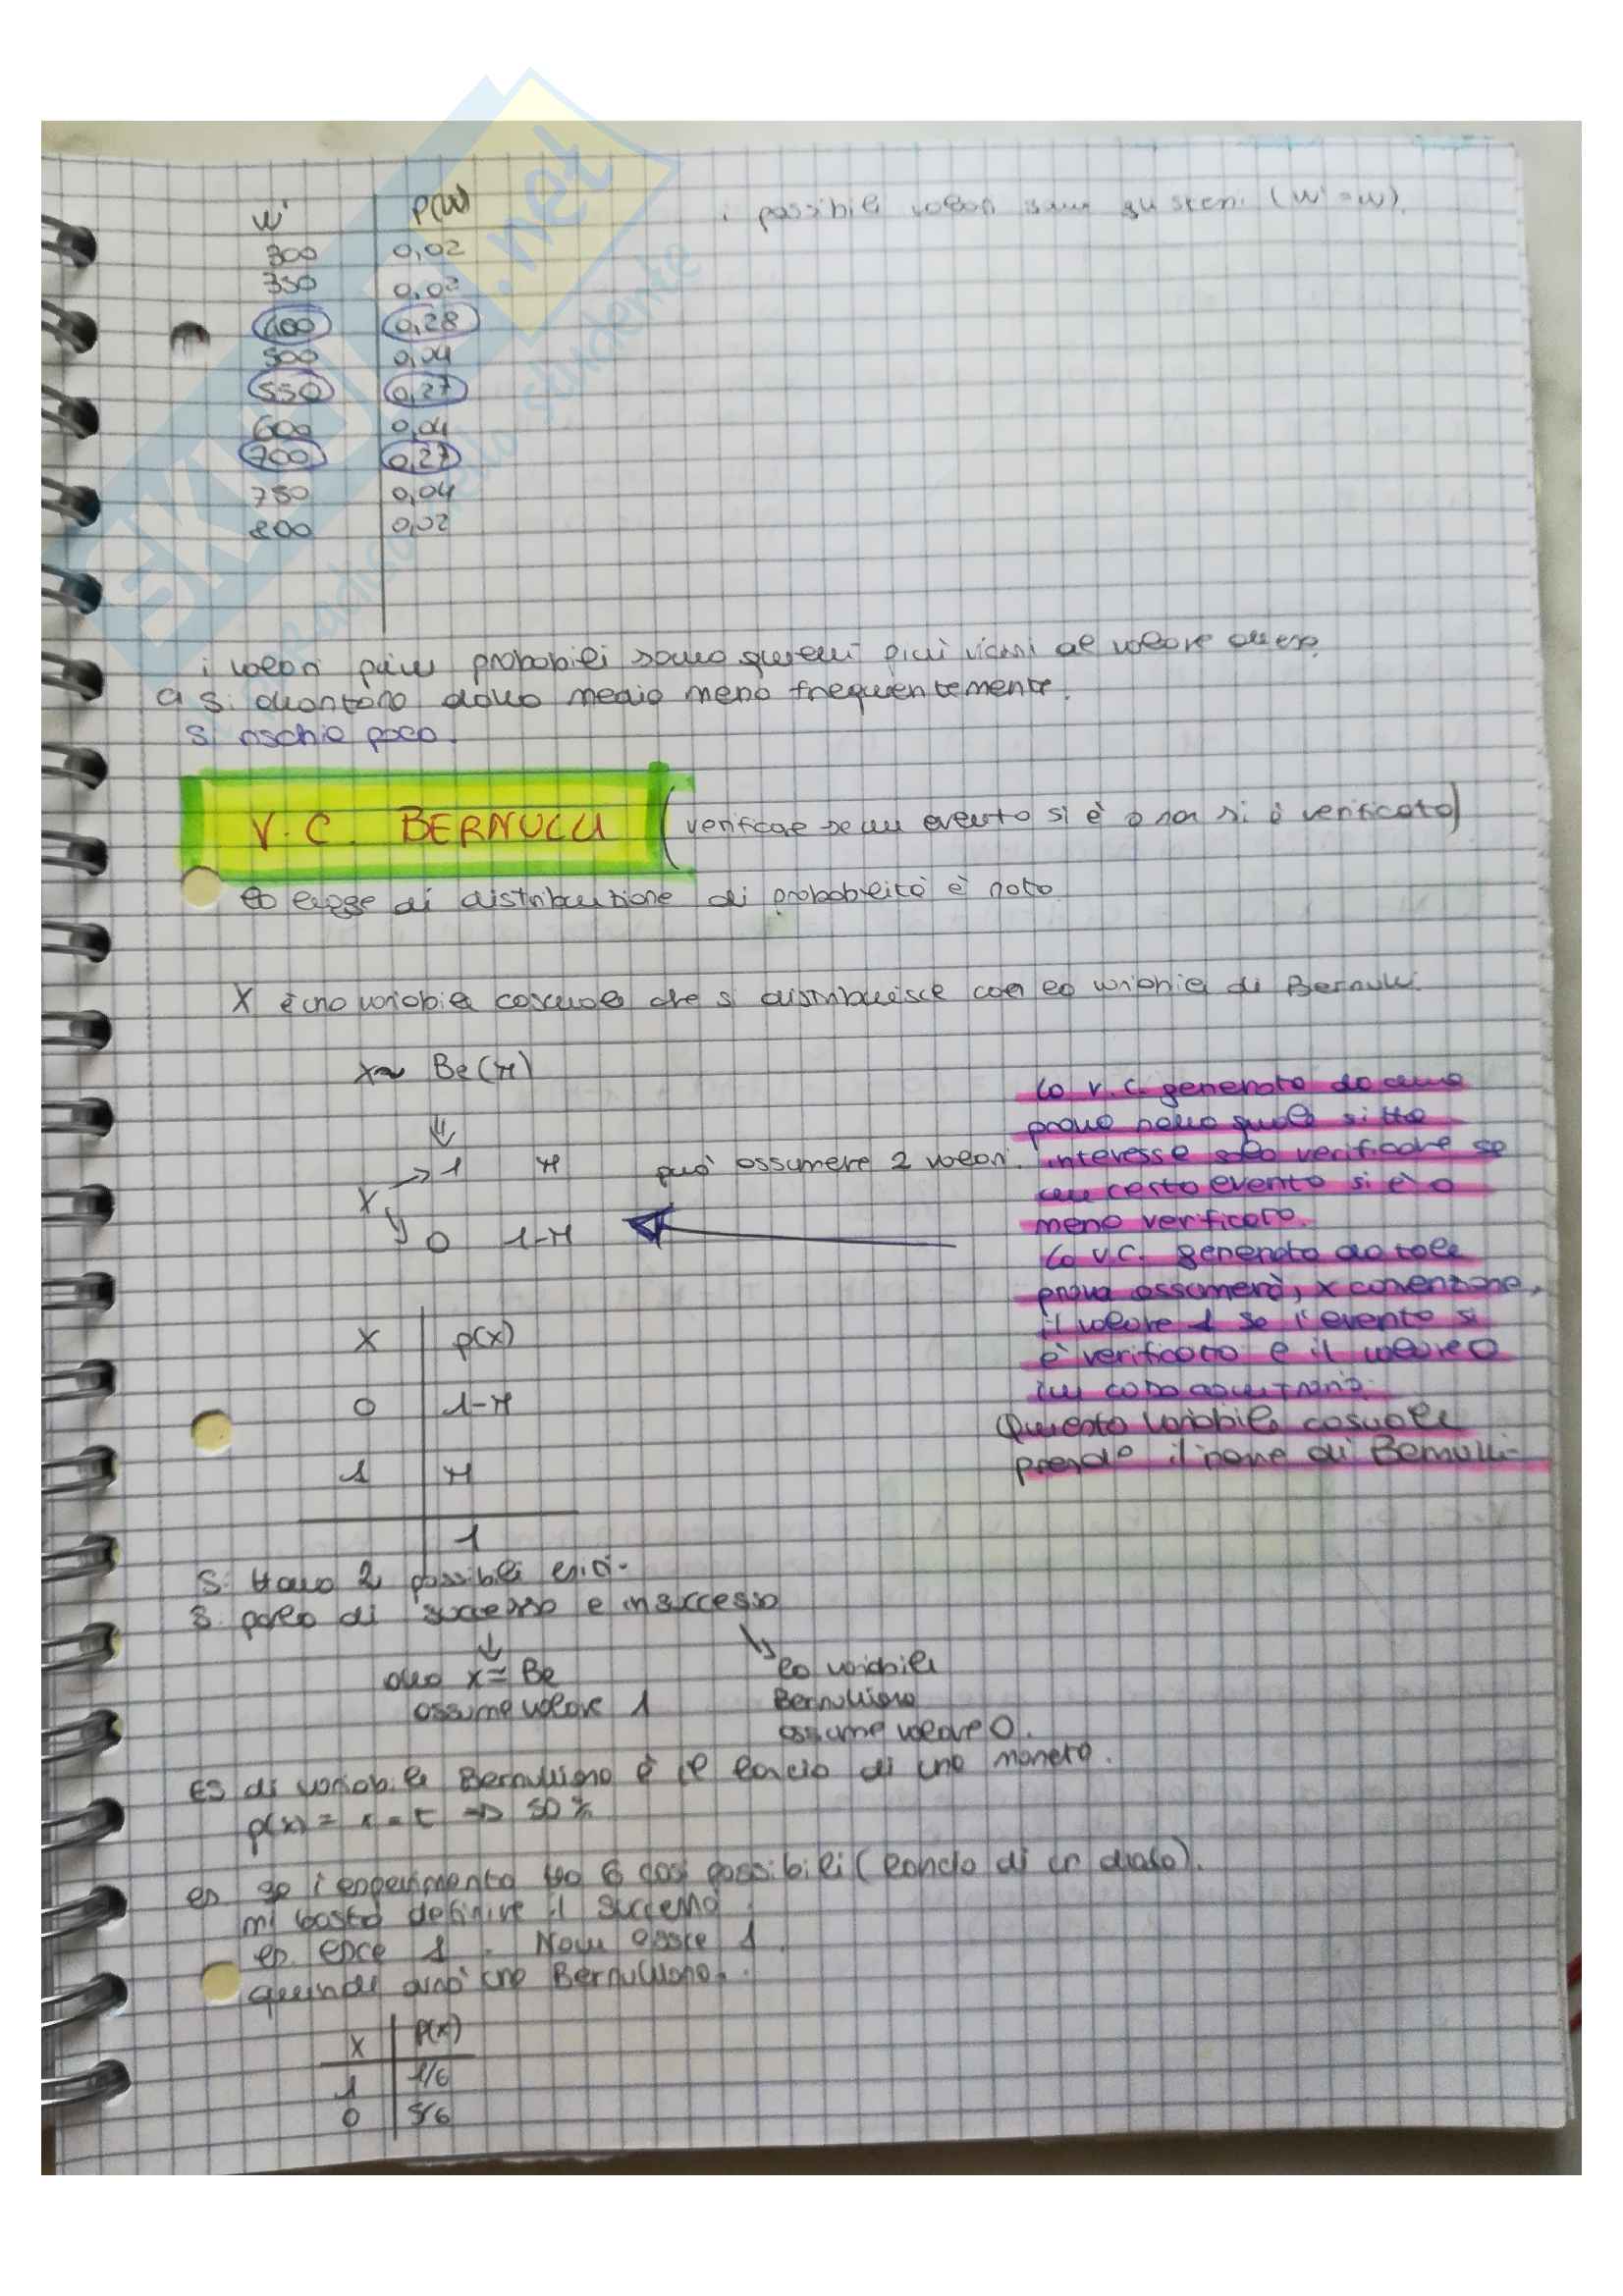 w' P(W)
300 0,02
350 0,02
400 0,28
500 0,04
550 0,27
600 0,04
700 0,27
750 0,04
800 0,02
i possibili valori sono gli stessi (w' = w).
i valori più probabili sono quelli più vicini al valore atteso.
ci si allontana dalla media meno frequentemente.
Si rischia poco.
V.C. BERNULLI (verificare se un evento si è o non si è verificato)
la legge di distribuzione di probabilità è nota
X è una variabile casuale che si distribuisce con la variabile di Bernulli.
X~ Be(π)
1 π può assumere 2 valori.
X
0 1-π
La v.c. generata da una
prova nella quale si ha
interesse solo verificare se
un certo evento si è o
meno verificato.
La v.c. generata da tale
prova assumerà, x convenzione,
il valore 1 se l'evento si
è verificato e il valore 0
in caso contrario.
Questa variabile casuale
prende il nome di Bernulli
X p(x)
0 1-π
1 π
1
Si hanno 2 possibili esiti.
Si parla di successo e insuccesso
x = Be
assume valore 1
la variabile
Bernulliana
assume valore 0.
ES di variabile Bernulliana è il lancio di una moneta.
p(x) = 50%
es se l'esperimento ha 6 casi possibili (lancio di un dado).
mi basta definire il successo
es. esce 1. Non esce 1.
quindi avrò una Bernulliana.
X P(x)
1 1/6
0 5/6
SKUOLA.net